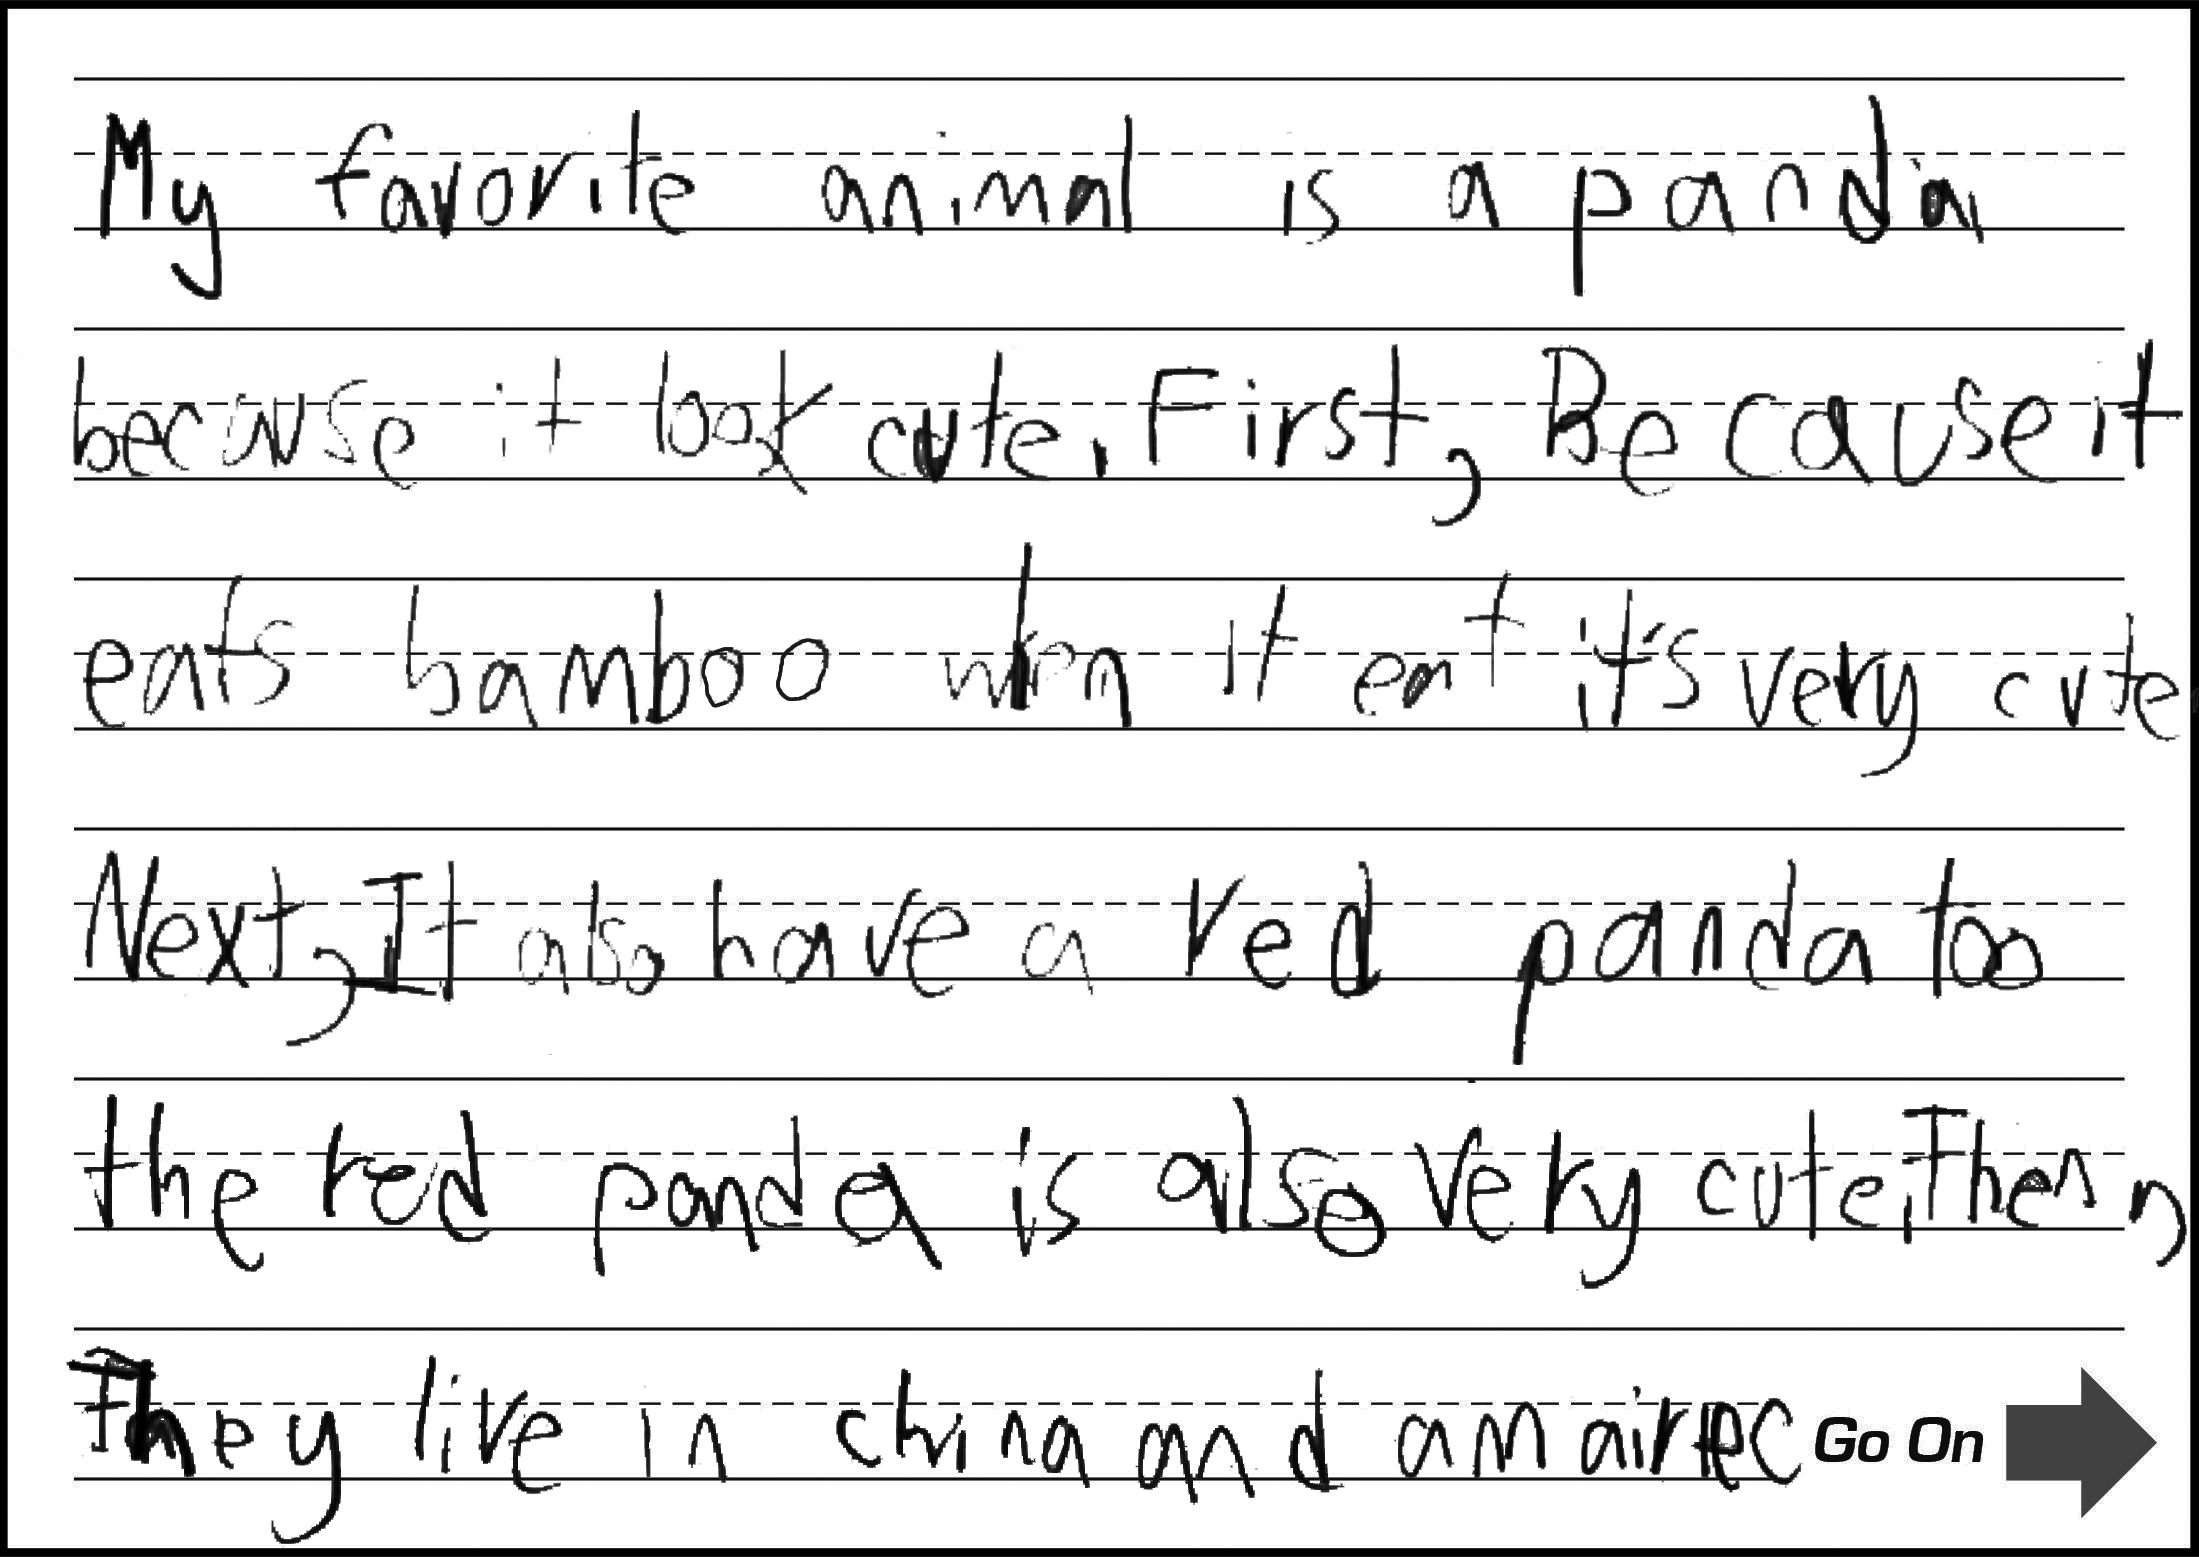 My favorite animal is a panda,
because it look cute. First, Because it
eats bamboo when it eat it's very cute
Next, It also have a red panda too
the red panda is also very cute. Then,
They live in china and amairec Go On